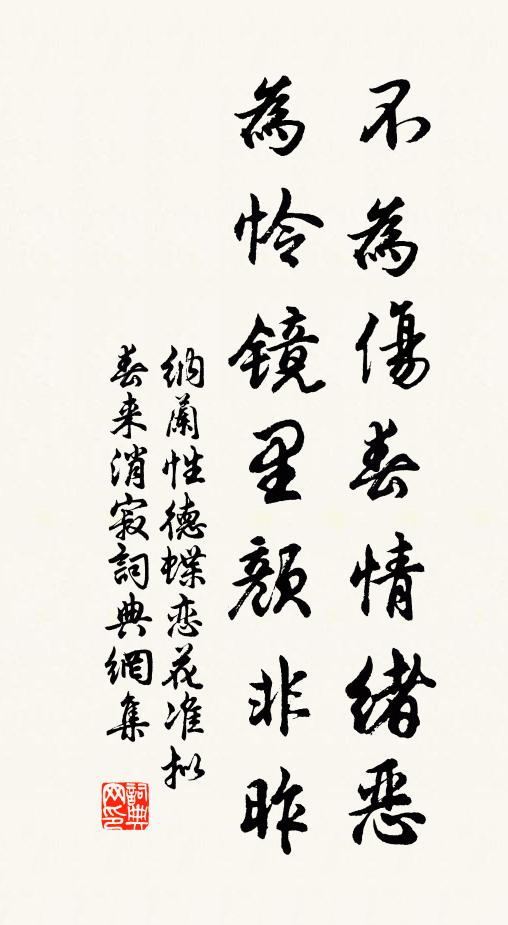 不為傷春情緒惡
為怜鏡里顏非昨
納蘭性德蝶恋花准拟
春来消寂詞典網集
詞典网印